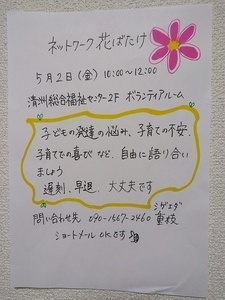 ネットワーク花ばたけ
5月2日(金) 10:00～12:00
清洲総合福祉センター2F ボランティアルーム
子どもの発達の悩み、子育ての不安、
子育ての喜び など、自由に語り合い
ましょう
遅刻、早退、大丈夫です
シゲエダ
問い合わせ先 090-1567-2460 重枝
ショートメール OKです